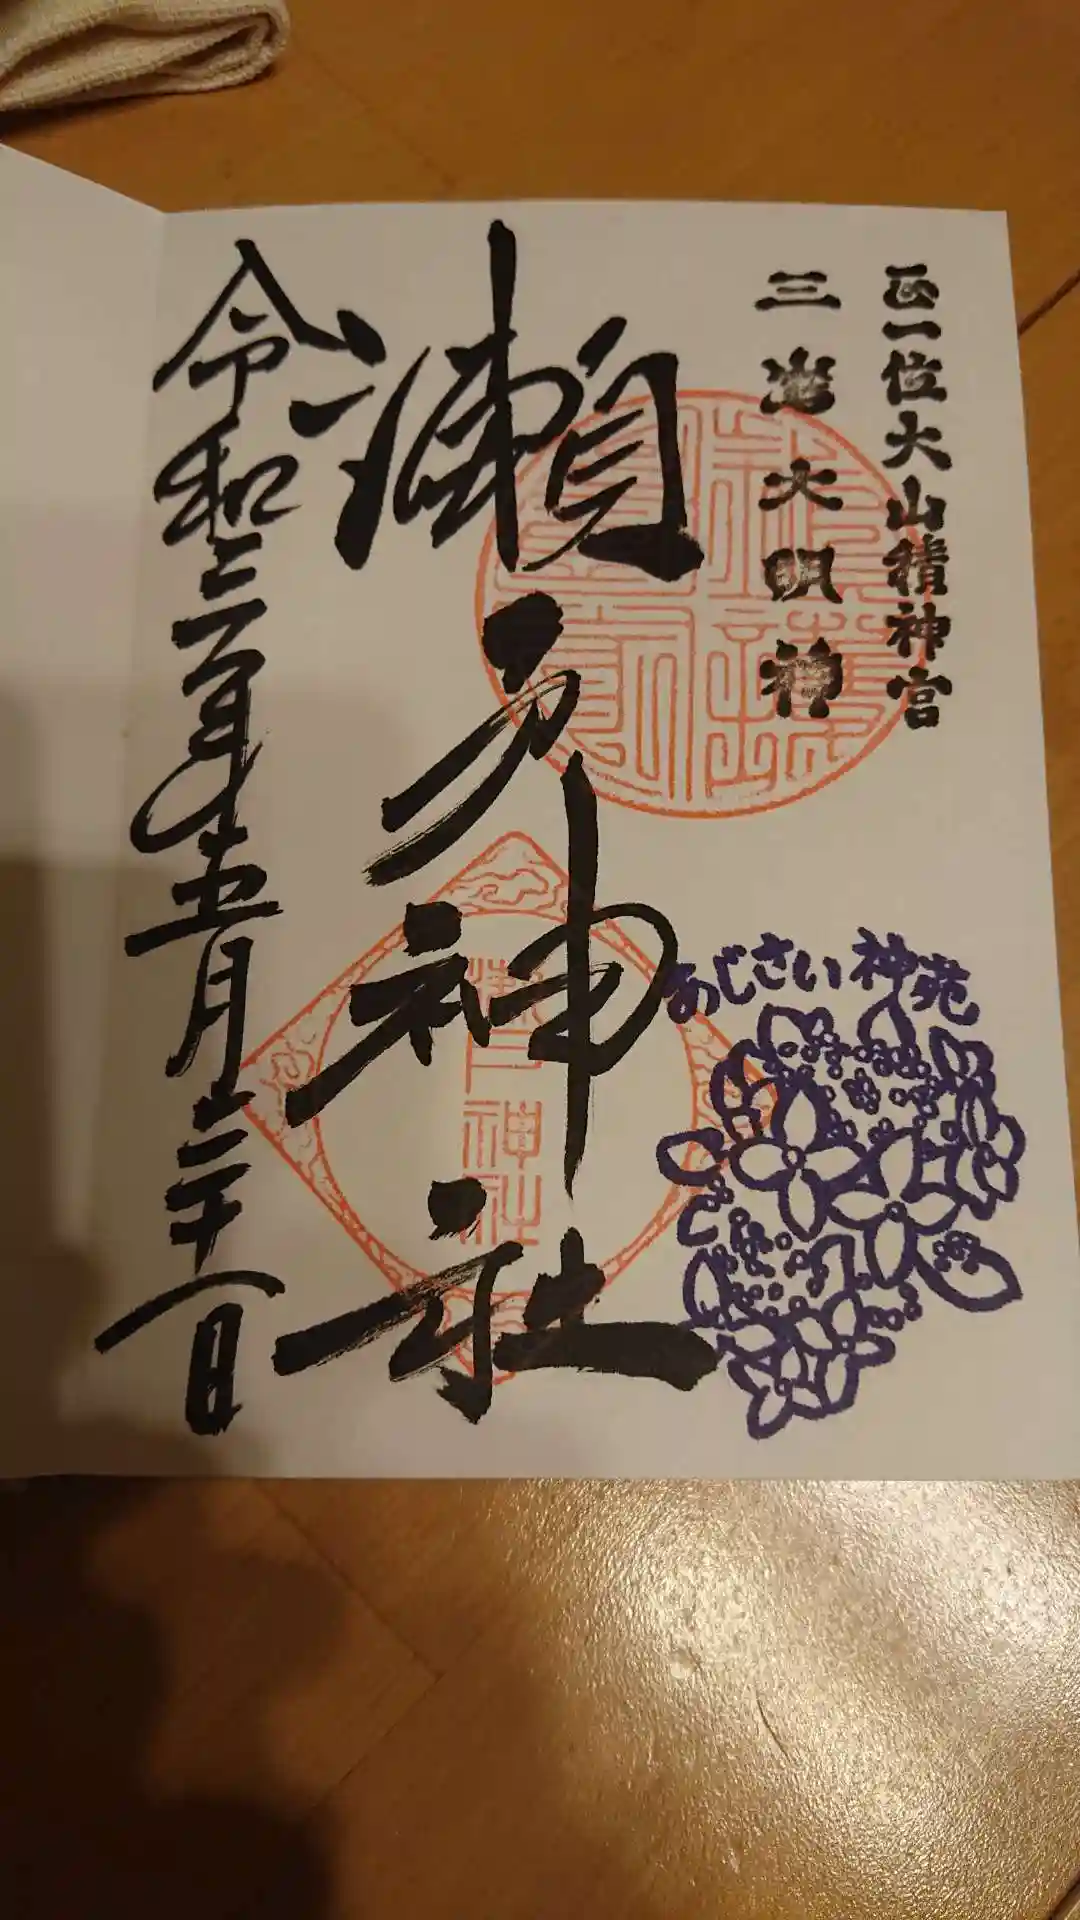 正一位大山積神宮
三嶌大明神
瀬戸神社
令和三年五月三十一日
瀬戸神社
あじさい神苑